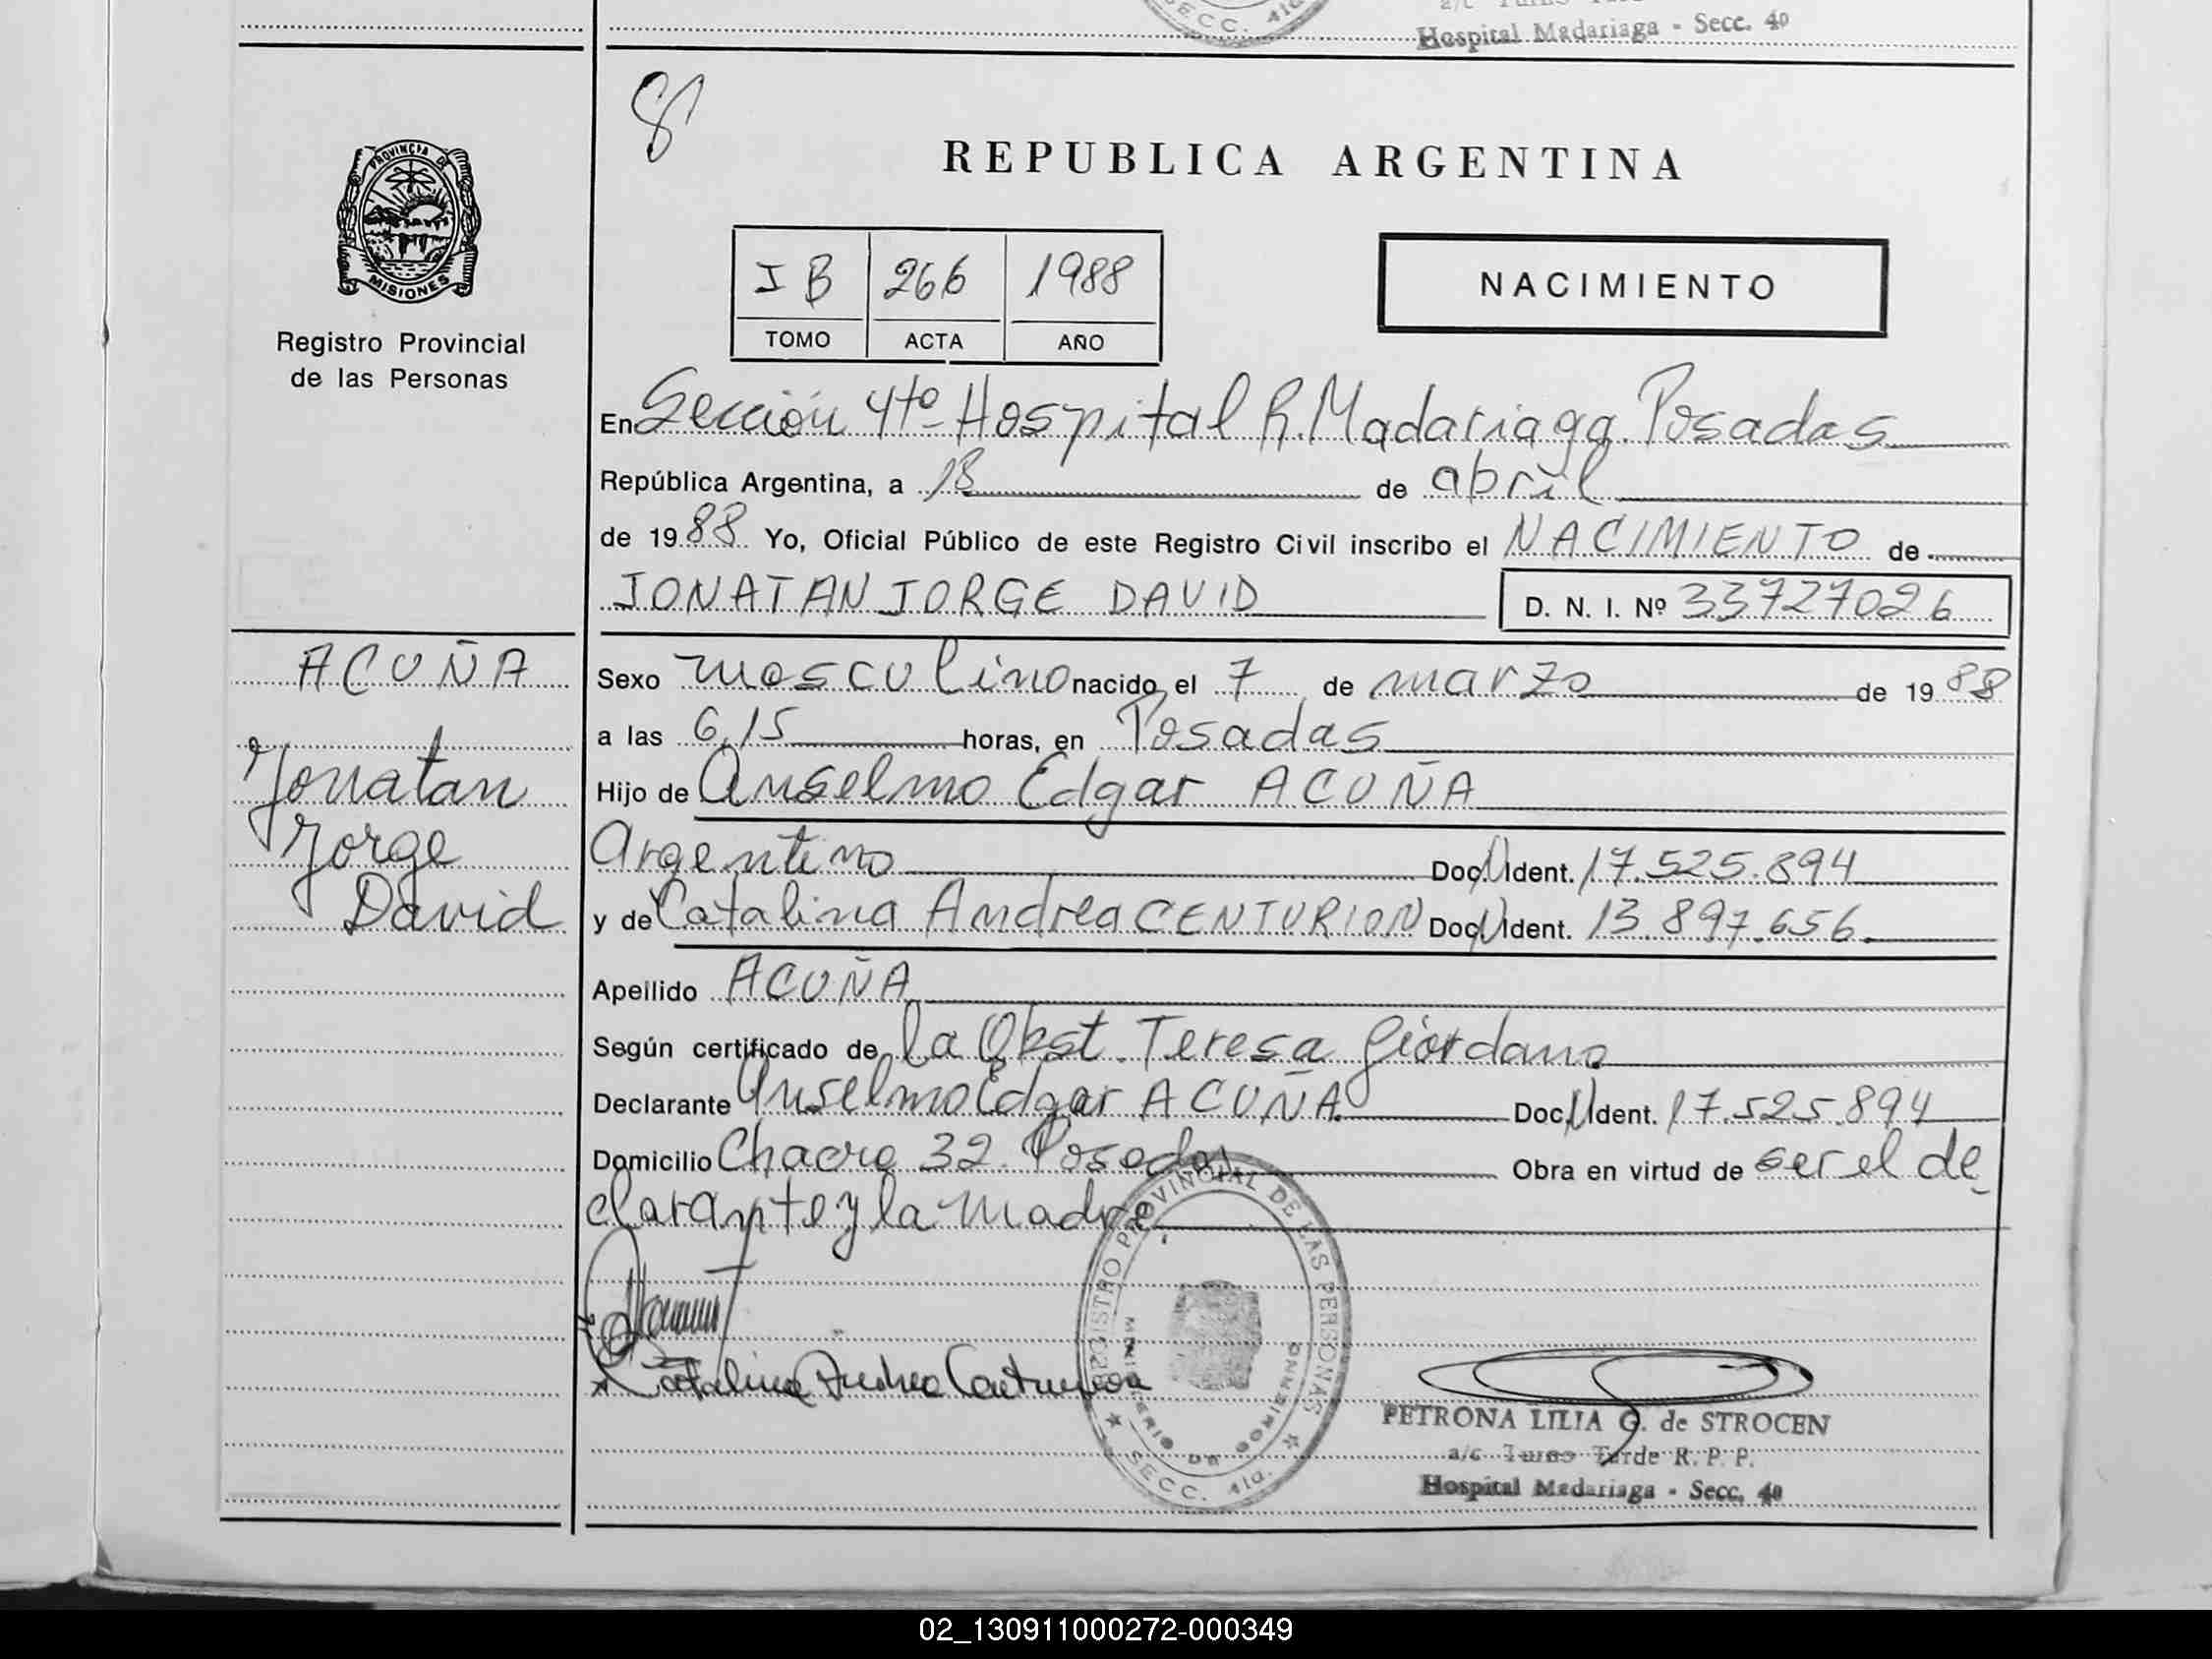 SECC. 4ta.
a/c Turno Tarde
Hospital Madariaga - Secc. 4a
8
PROVINCIA DE
MISIONES
Registro Provincial
de las Personas
REPUBLICA ARGENTINA
I B 266 1988
TOMO ACTA AÑO
NACIMIENTO
En Sección 4ta Hospital R. Madariaga. Posadas
República Argentina, a 18 de abril
de 1988 Yo, Oficial Público de este Registro Civil inscribo el NACIMIENTO de
JONATAN JORGE DAVID D. N. I. Nº 33727026
ACUÑA
Jonatan
Jorge
David
Sexo masculino nacido el 7 de marzo de 1988
a las 6,15 horas, en Posadas
Hijo de Anselmo Edgar ACUÑA
Argentino Doc. N Ident. 17.525.894
y de Catalina Andrea CENTURION Doc. N Ident. 13.897.656.
Apellido ACUÑA
Según certificado de la Obst. Teresa Giordano
Declarante Anselmo Edgar ACUÑA Doc. N Ident. 17.525.894
Domicilio Chacra 32. Posadas Obra en virtud de ser el de_
clarante y la madre
Catalina Andrea Centurion
REGISTRO PROVINCIAL DE LAS PERSONAS
MINISTERIO DE GOBIERNO
SECC. 4ta.
PETRONA LILIA G. de STROCEN
a/c Turno Tarde R. P. P.
Hospital Madariaga - Secc. 4a
02_130911000272-000349